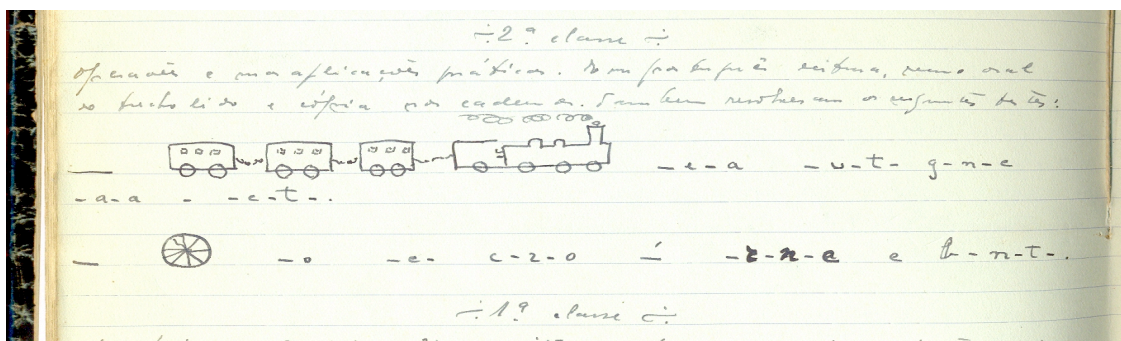 ÷ 2.ª classe ÷
Operações e suas aplicações práticas. Em português leitura, resumo oral
do trecho lido e cópia nos cadernos. Também resolveram os seguintes testes:
— - e - a - u - t - g - n - e
- a - a - - e - t - .
— - o - e - c - r - o é - r - n - e e b - n - t - .
÷ 1.ª classe ÷